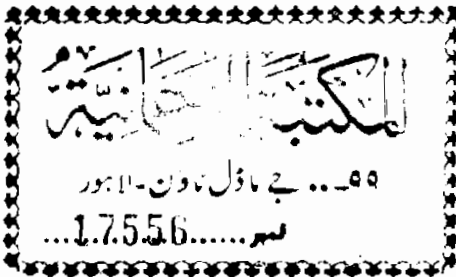 المکتبۃ الرحمانیۃ
۹۹... جے ماڈل ٹاؤن - لاہور
نمبر......17556...